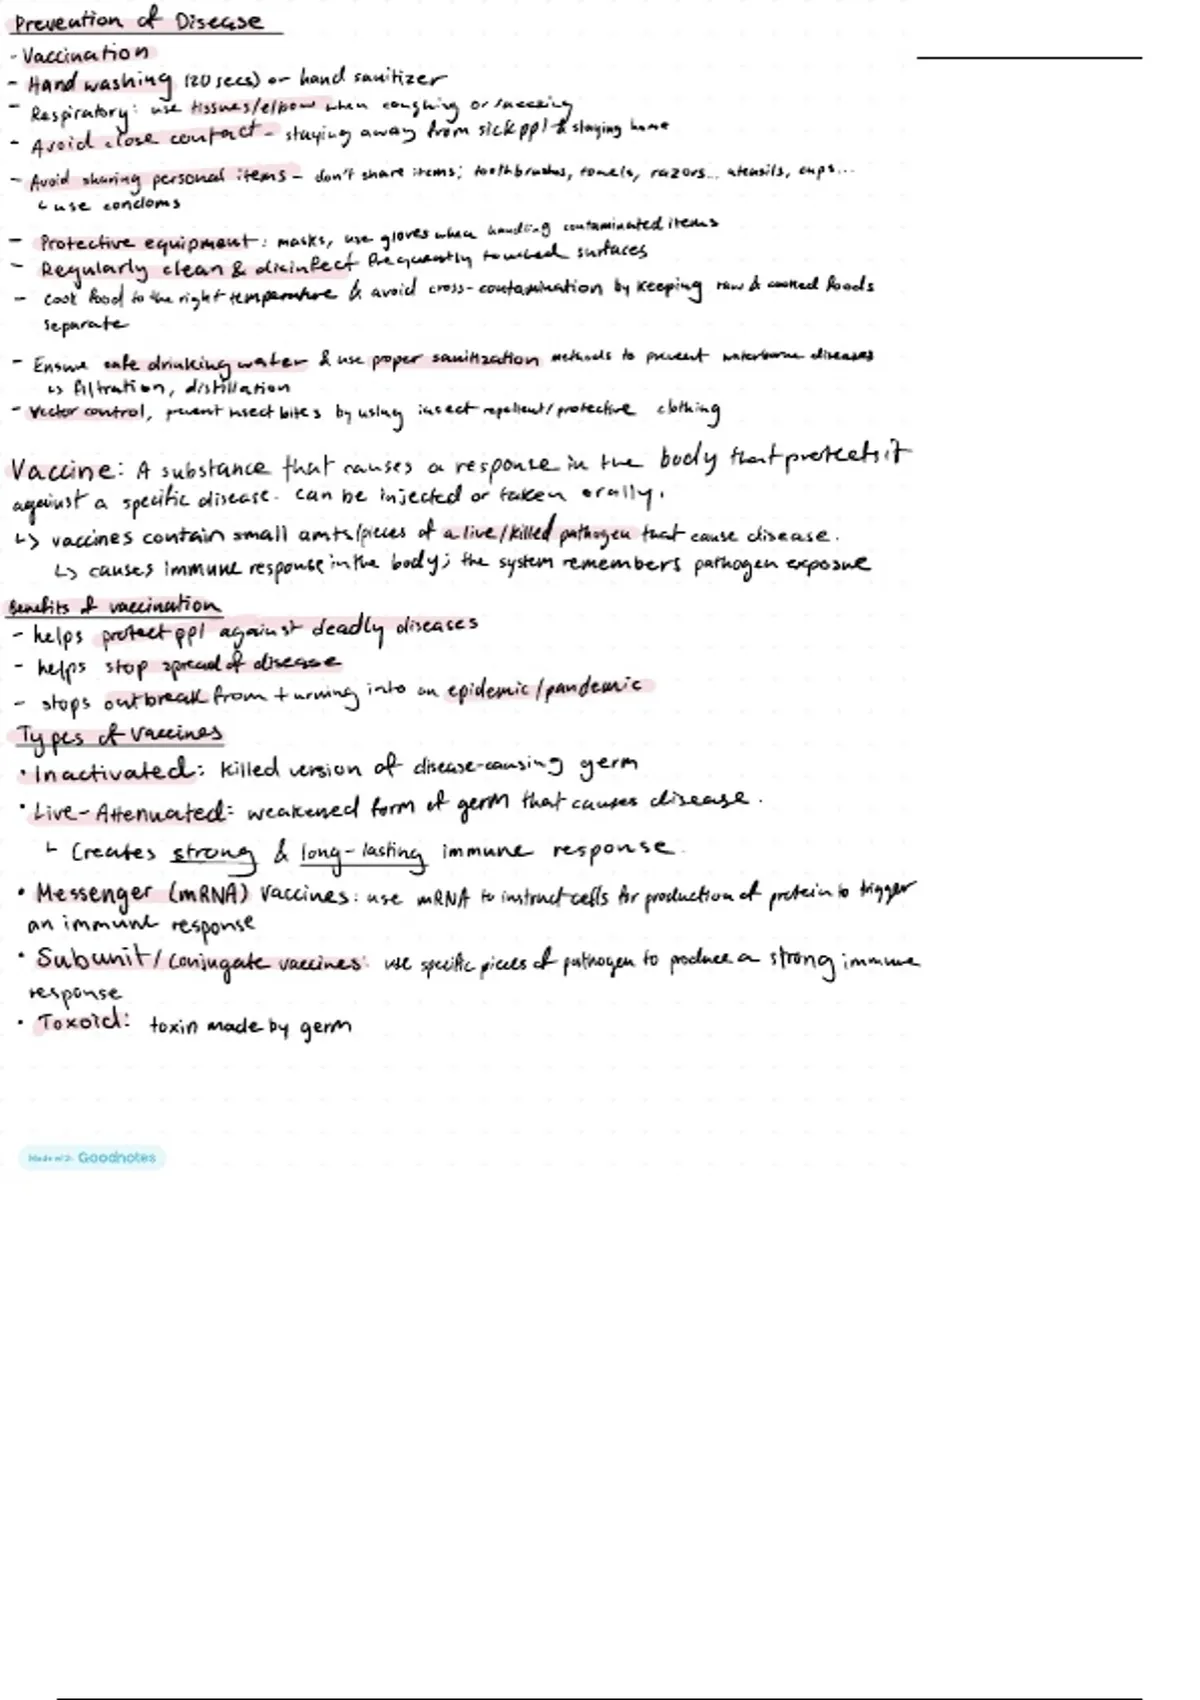 Prevention of Disease
- Vaccination
- Hand washing (20 secs) or hand sanitizer
- Respiratory: use tissues/elbow when coughing or sneezing
- Avoid close contact - staying away from sick ppl & staying home
- Avoid sharing personal items - don't share items; toothbrushes, towels, razors... utensils, cups...
↳ use condoms
- Protective equipment: masks, use gloves when handling contaminated items
- Regularly clean & disinfect frequently touched surfaces
- Cook food to the right temperature & avoid cross-contamination by keeping raw & cooked foods
separate
- Ensure safe drinking water & use proper sanitization methods to prevent waterborne diseases
↳ filtration, distillation
- Vector control, prevent insect bites by using insect repellent/protective clothing
Vaccine: A substance that causes a response in the body that protects it
against a specific disease. can be injected or taken orally.
↳ vaccines contain small amts/pieces of a live/killed pathogen that cause disease.
↳ causes immune response in the body; the system remembers pathogen exposure
Benefits of vaccination
- helps protect ppl against deadly diseases
- helps stop spread of disease
- stops outbreak from turning into an epidemic/pandemic
Types of Vaccines
• Inactivated: killed version of disease-causing germ
• Live-Attenuated: weakened form of germ that causes disease.
↳ Creates strong & long-lasting immune response.
• Messenger (mRNA) Vaccines: use mRNA to instruct cells for production of protein to trigger
an immune response
• Subunit/conjugate vaccines: use specific pieces of pathogen to produce a strong immune
response
• Toxoid: toxin made by germ
Made with Goodnotes